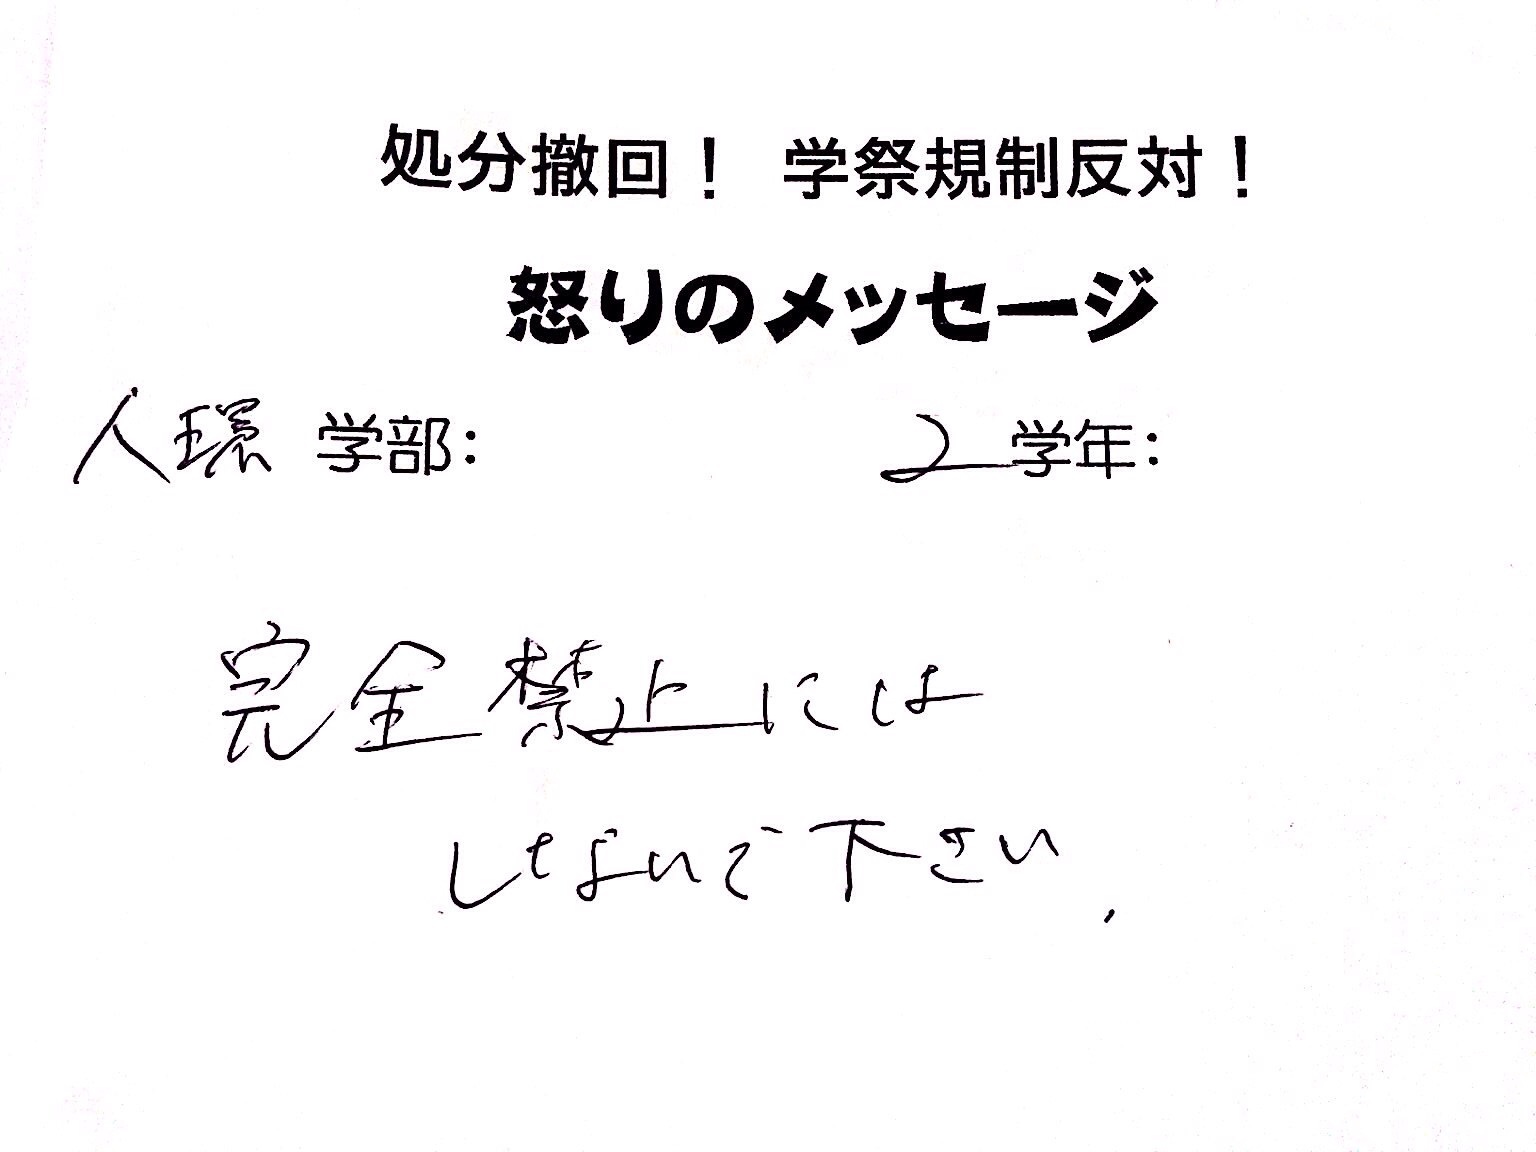 処分撤回！ 学祭規制反対！
怒りのメッセージ
人環 学部： 2 学年：
完全禁止には
しないで下さい.